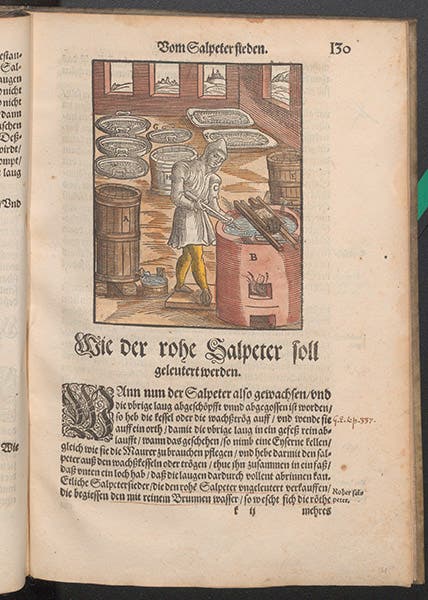 estan-
Sal-
augen
d nicht
o nicht
dann
uschen
Deß-
wirdt/
ompt/
laug
Vnd
Wie
Vom Salpetersieden.
130
A
B
C
H
Wie der rohe Salpeter soll
geleutert werden.
WAnn nun der Salpeter also gewachsen/ vnd
die vbrige laug abgeschöpfft vnnd abgegossen ist worden/
so heb die kessel oder die wachßtrög auff/ vnd wende sie
auff ein orth/ damit die vbrige laug in ein gefeß rein ab-
laufft/ wann das geschehen/ so nimb eine Eyserne kellen/
gleich wie sie die Maurer zu brauchen pflegen/ vnd hebe darmit den sal-
peter auß den wachßkesseln oder trögen/ thue jhn zusammen in ein faß/
daß vnten ein loch hab/ daß die laugen dardurch vollent abrinnen kan.
Etliche Salpetersieder/ die den rohe Salpeter vngeleutert verkauffen/
die begiessen den mit reinem Brunnen wasser/ so wescht sich die röthe
Roher sal-
peter.
k ij
mehres